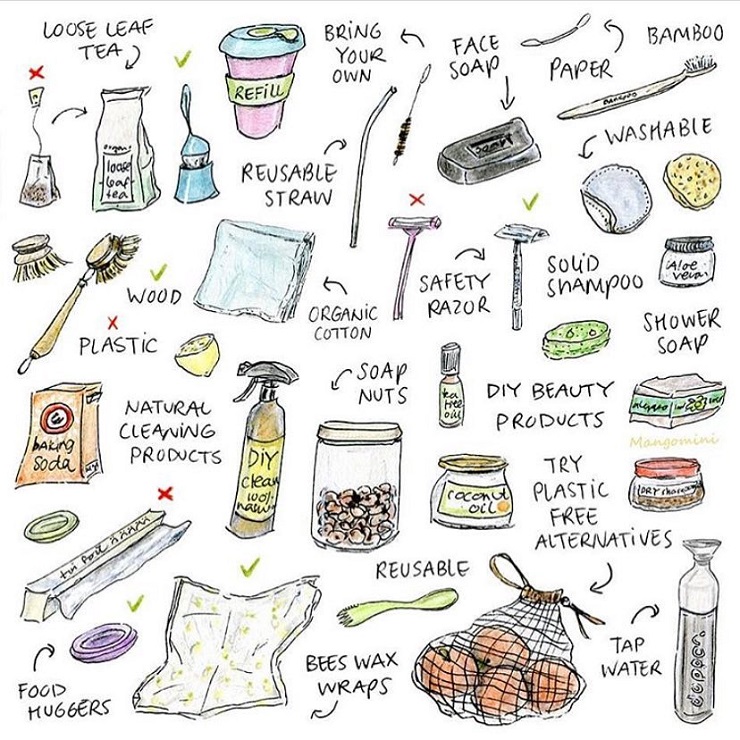 LOOSE LEAF
TEA
BRING
YOUR
OWN
FACE
SOAP
PAPER
BAMBOO
REFILL
WASHABLE
organ.
loose
leaf
tea
REUSABLE
STRAW
WOOD
PLASTIC
ORGANIC
COTTON
SAFETY
RAZOR
SOLID
SHAMPOO
Aloe
vera
SHOWER
SOAP
BAKING
Soda
NATURAL
CLEANING
PRODUCTS
DIY
clean
100%
SOAP
NUTS
tea
tree
oil
DIY BEAUTY
PRODUCTS
Mangomini
coconut
oil
TRY
PLASTIC
FREE
ALTERNATIVES
DRY
REUSABLE
FOOD
HUGGERS
BEES WAX
WRAPS
TAP
WATER
dopper